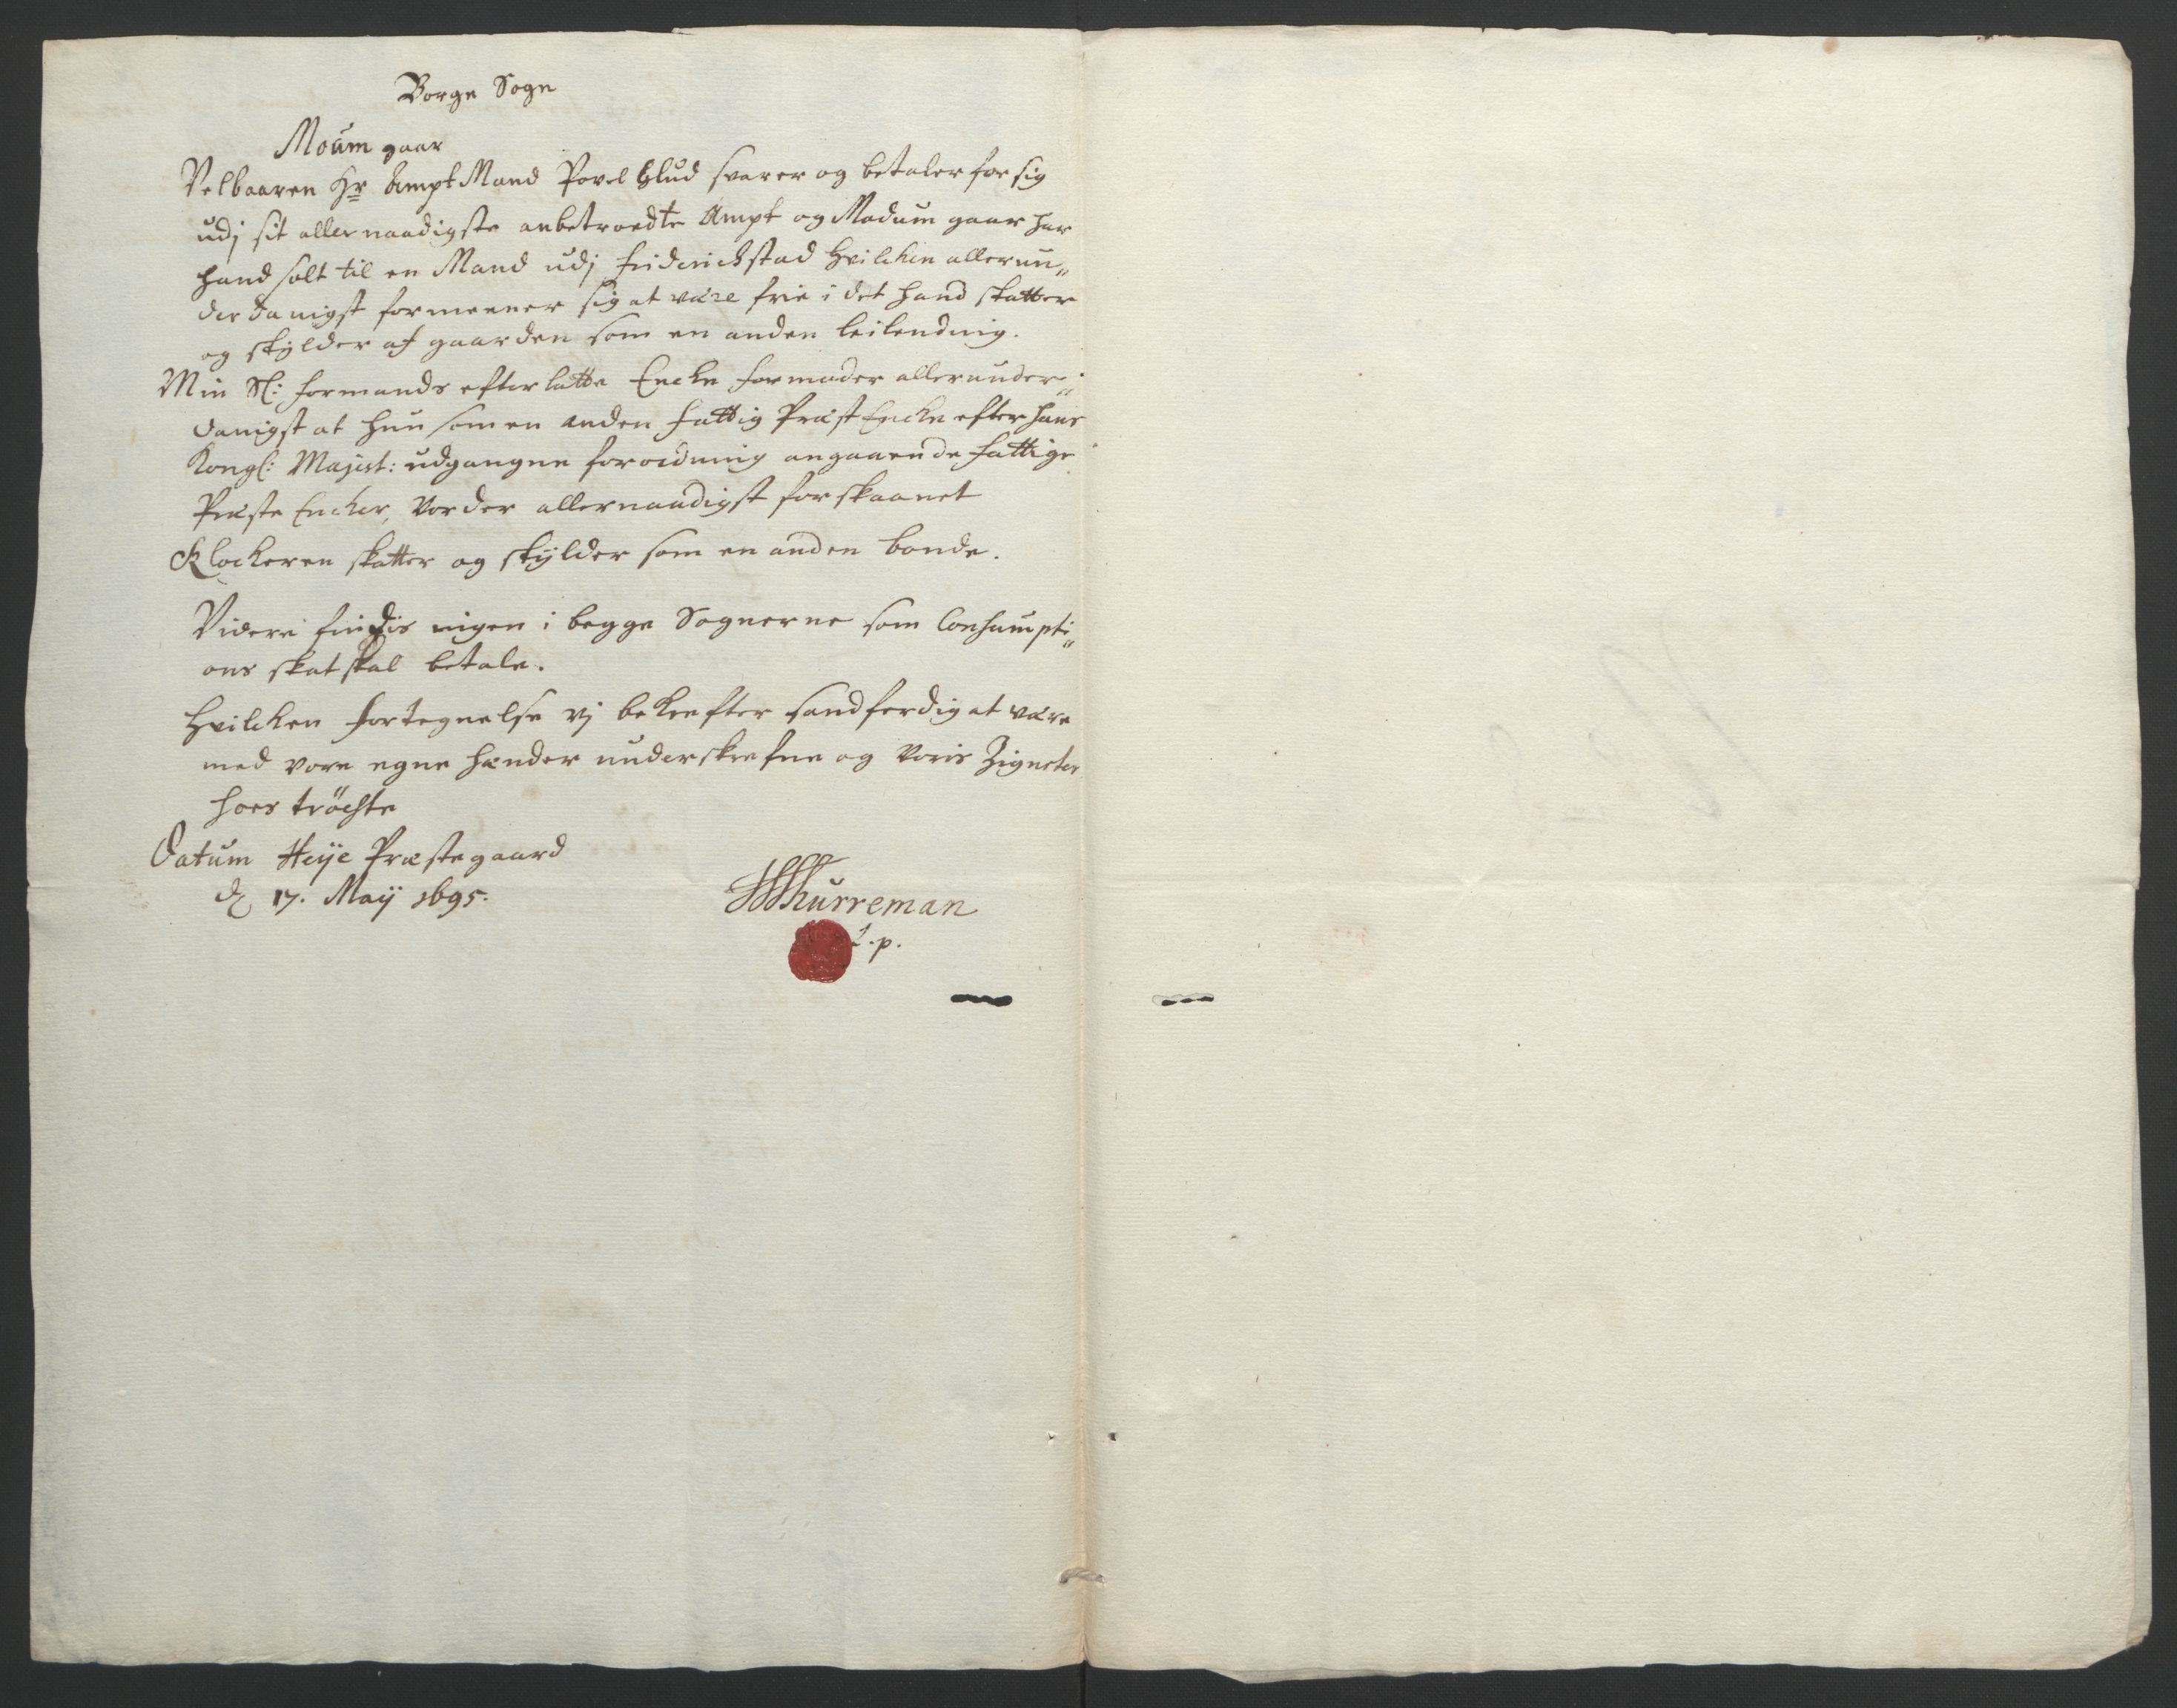 Borge Sogn
Moüm gaar
Velbaaren Hr AmptMand Povel Glud svarer og betaler for sig
udj sit allernaadigste anbetroedte Ampt og Modum gaar har
hand solt til en Mand udj Friderichstad hvilchen allerun„
derdanigst formeener sig at være frie i det hand skatter
og skylder af gaarden som en anden leilending.
Min Sl: formands efterlatte Encke formoder allerunder„
danigst at hun som en anden fattig Præst Encke efter hans
Kongl: Majest: udgangne forordning angaaende fattige
Præste Encker, vorder allernaadigst forskaanet
Klockeren skatter og skylder som en anden bonde.
Videre findis ingen i begge Sognerne som Consumpti„
ons skat skal betale.
Hvilchen fortegnelse vj bekrefter sandferdig at være
med vore egne hænder underskrefne og voris Zigneter
hoes tröchte
Datum Heye Præstegaard
d 17. Maij 1695.
Thurreman
p.